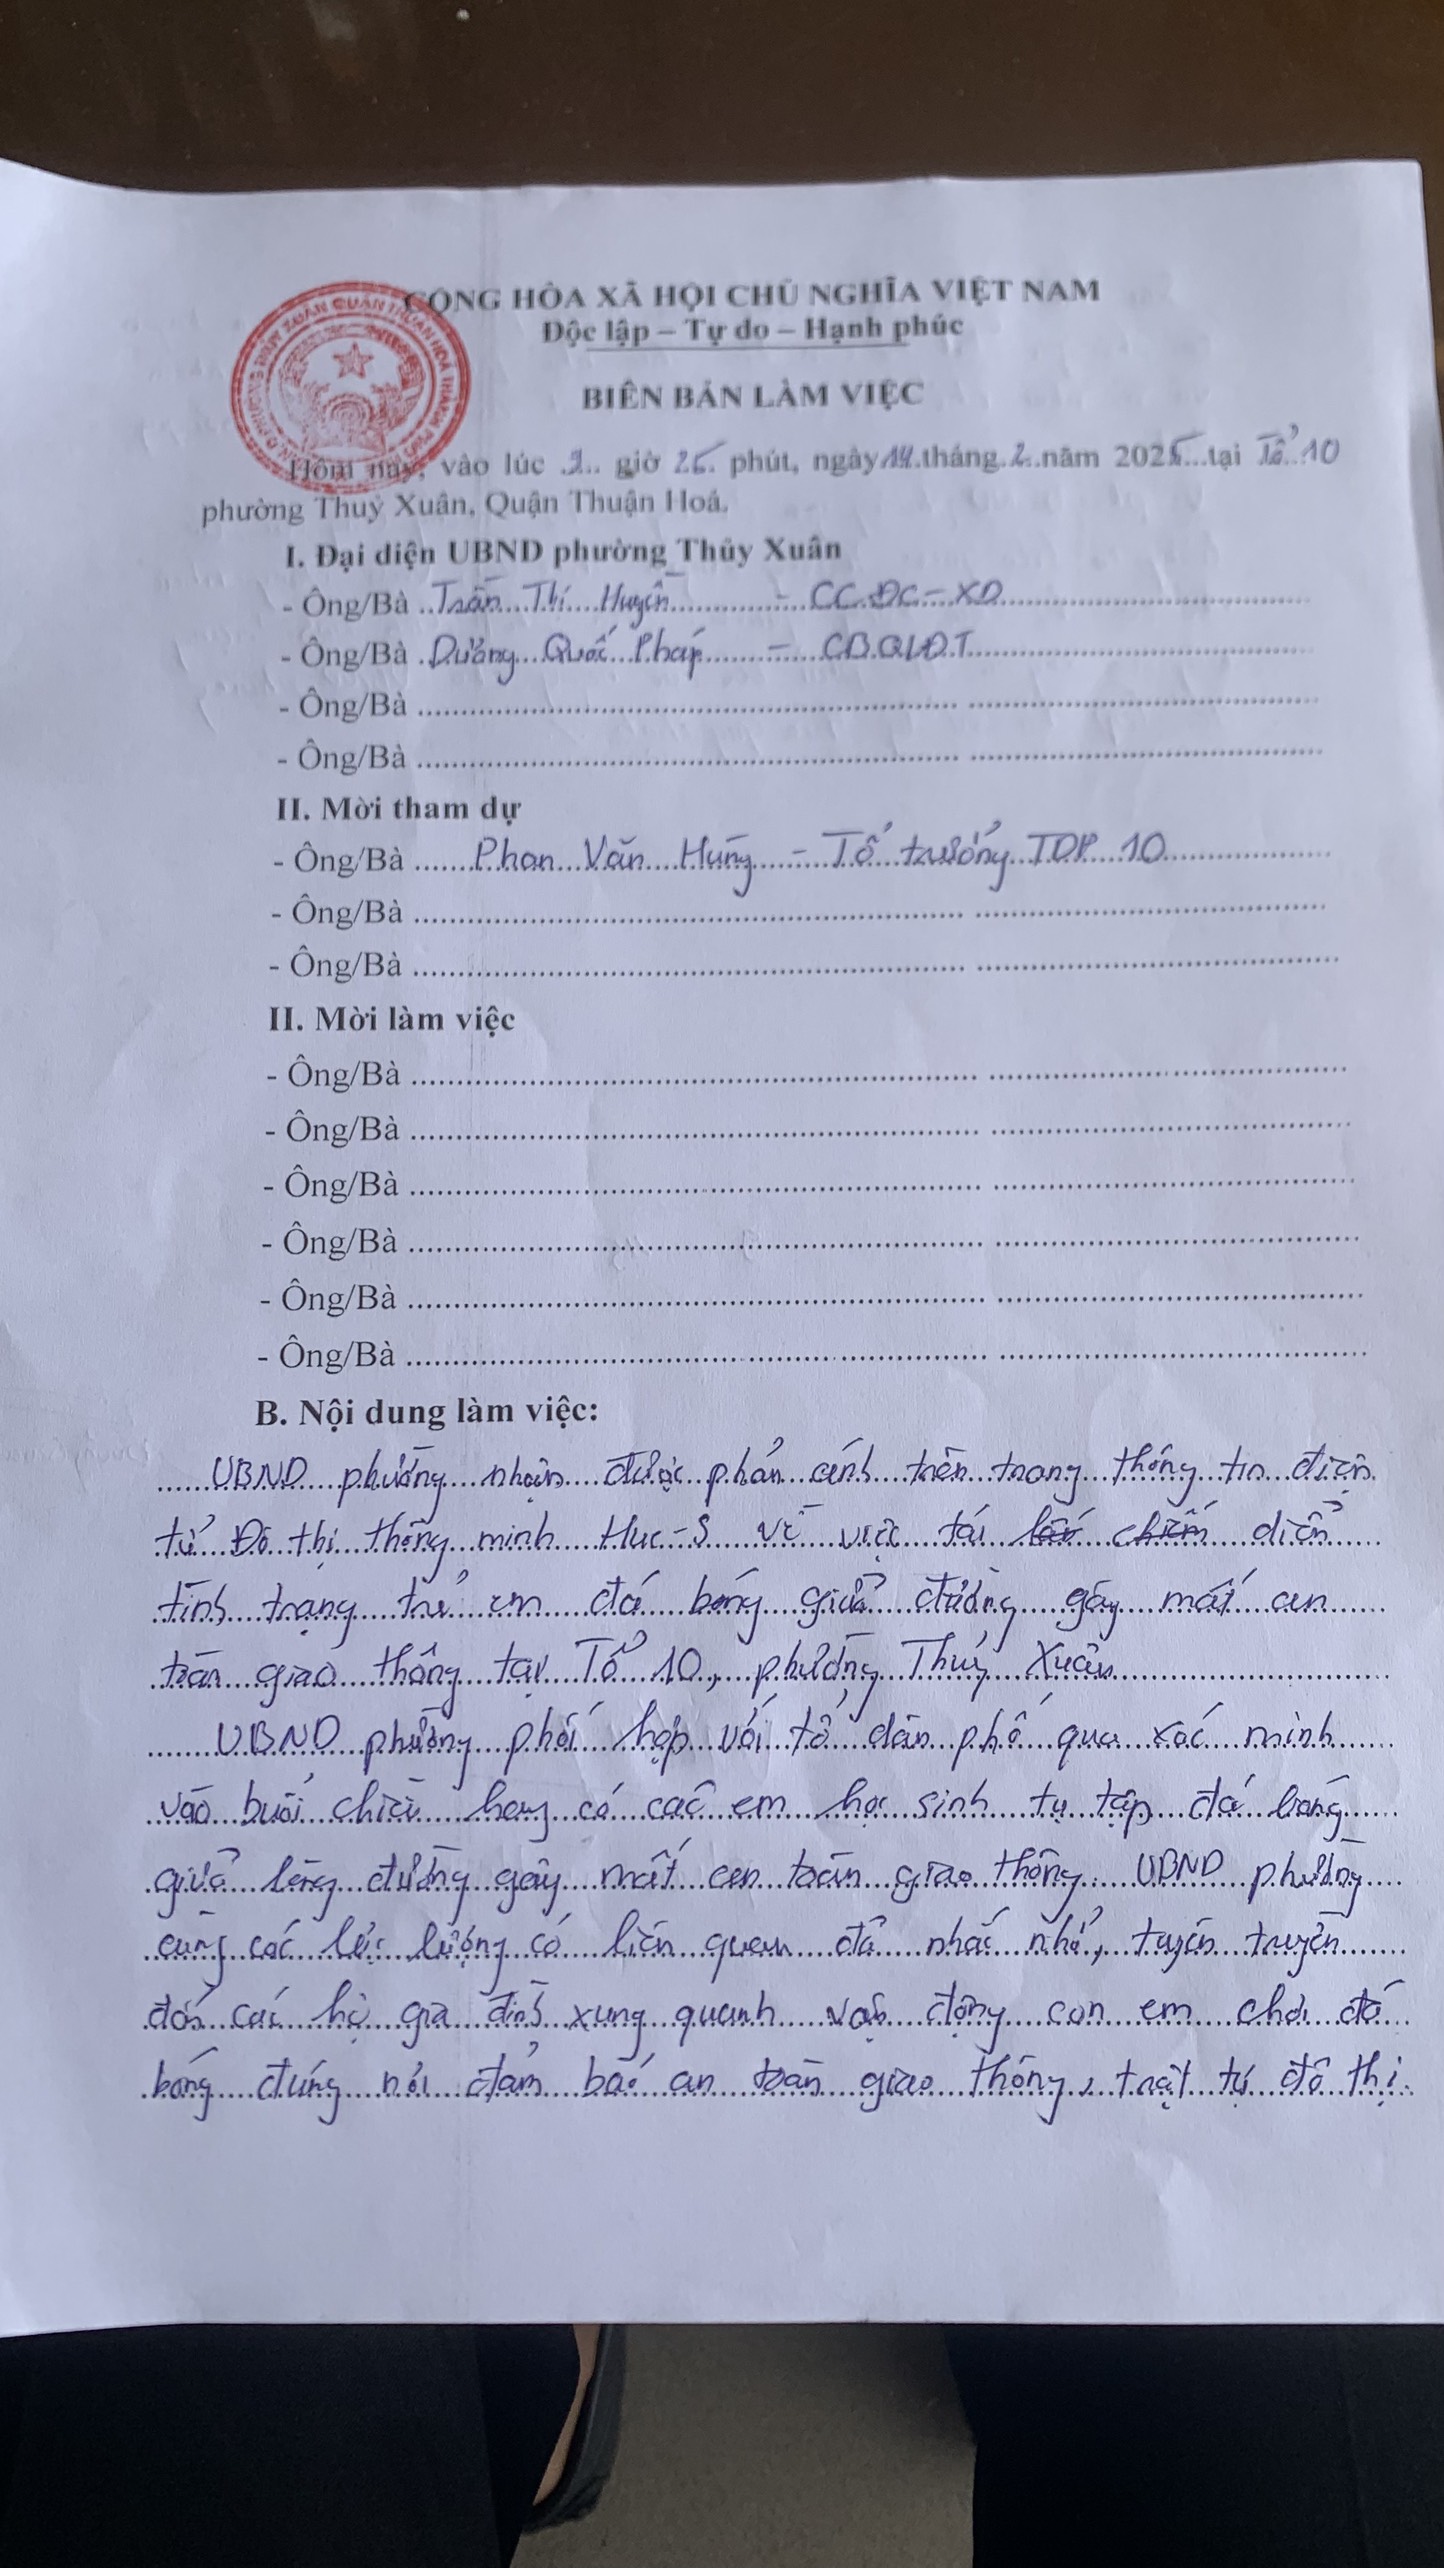 CỘNG HÒA XÃ HỘI CHỦ NGHĨA VIỆT NAM
Độc lập – Tự do – Hạnh phúc
BIÊN BẢN LÀM VIỆC
Hôm nay, vào lúc 9 giờ 25 phút, ngày 14 tháng 2 năm 2025 tại Tổ 10
phường Thuỷ Xuân, Quận Thuận Hoá.
I. Đại diện UBND phường Thủy Xuân
- Ông/Bà Trần Thị Huyền - CC ĐC-XD
- Ông/Bà Dương Quốc Pháp - CB QLĐT
- Ông/Bà
- Ông/Bà
II. Mời tham dự
- Ông/Bà Phan Văn Hùng - Tổ trưởng TDP 10
- Ông/Bà
- Ông/Bà
II. Mời làm việc
- Ông/Bà
- Ông/Bà
- Ông/Bà
- Ông/Bà
- Ông/Bà
- Ông/Bà
B. Nội dung làm việc:
UBND phường nhận được phản ánh trên trang thông tin điện
tử Đô thị thông minh Hue-S về việc tái diễn
tình trạng trẻ em đá bóng giữa đường gây mất an
toàn giao thông tại Tổ 10, phường Thuỷ Xuân
UBND phường phối hợp với tổ dân phố qua xác minh
vào buổi chiều hay có các em học sinh tụ tập đá bóng
giữa lòng đường gây mất an toàn giao thông. UBND phường
cùng các lực lượng có liên quan đã nhắc nhở, tuyên truyền
đến các hộ gia đình xung quanh vận động con em chơi đá
bóng đúng nơi đảm bảo an toàn giao thông, trật tự đô thị.